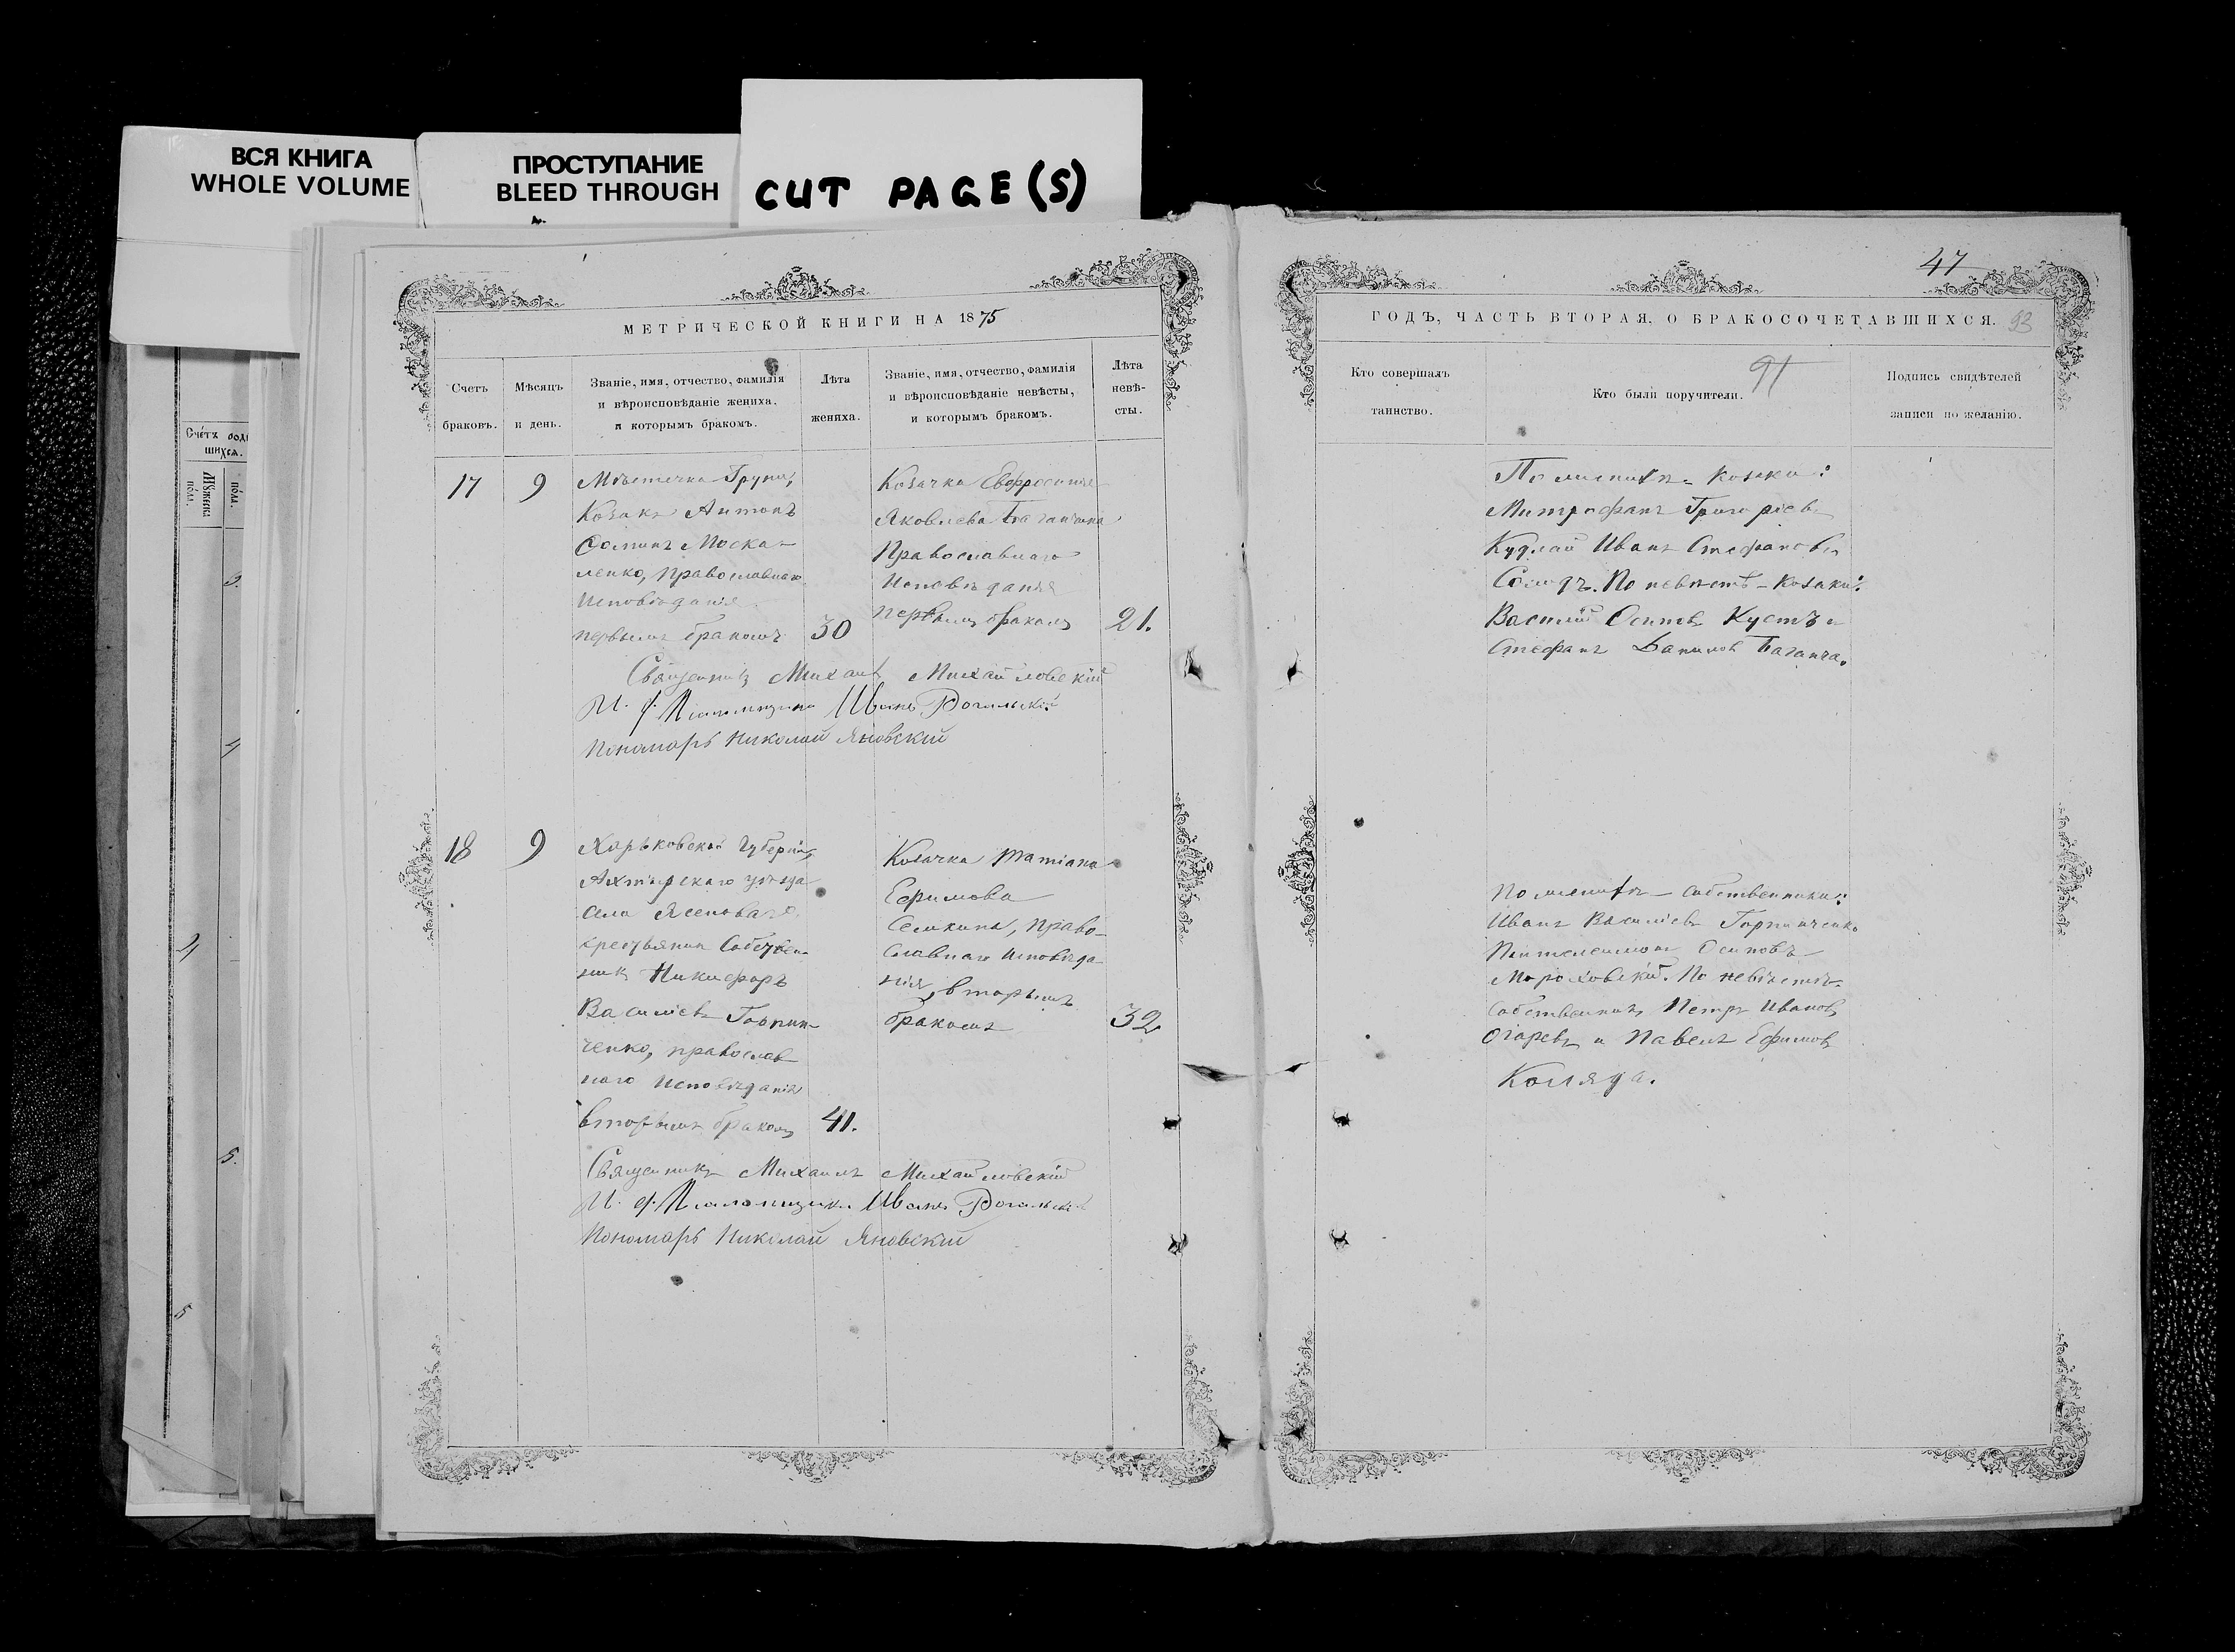 ВСЯ КНИГА
WHOLE VOLUME
ПРОСТУПАНИЕ
BLEED THROUGH
CUT PAGE(S)
МЕТРИЧЕСКОЙ КНИГИ НА 1875
Счетъ
браковъ.
Мѣсяцъ
и день.
Званіе, имя, отчество, фамилія
и вѣроисповѣданіе жениха.
и которымъ бракомъ.
Лѣта
жениха.
Званіе, имя, отчество, фамилія
и вѣроисповѣданіе невѣсты,
и которымъ бракомъ.
Лѣта
невѣ-
сты.
17
9
Мѣстечка Груни,
Козакъ Антонъ
Моска-
ленко, православнаго
Исповѣданія
первымъ бракомъ
30
Козачка Евфросинія
Яковлева
Православнаго
Исповѣданія
первымъ бракомъ
21.
Священникъ Михаилъ Михайловскій
И. д. Псаломщика Иванъ Рогальскій
Пономарь Николай Яновскій
18
9
Харьковской Губерніи,
Ахтырскаго уѣзда
села Ясеноваго
крестьянин Собствен-
никъ Никифоръ
Василіевъ Горпин-
ченко, православ-
наго Исповѣданія
вторымъ бракомъ
41.
Козачка Татіана
Ефимова
Семкина, право-
славнаго Исповѣда-
нія, вторымъ
бракомъ
32
Священникъ Михаилъ Михайловскій
И. д. Псаломщика Иванъ Рогальскій
Пономарь Николай Яновскій
47
ГОДЪ, ЧАСТЬ ВТОРАЯ, О БРАКОСОЧЕТАВШИХСЯ.
93
91
Кто совершалъ
таинство.
Кто были поручители.
Подпись свидѣтелей
записи по желанію.
По женихѣ - козаки:
Митрофанъ Григоріевъ
Кудлай Иванъ Стефановъ
По невѣстѣ - козаки:
Василій Осиповъ Кустъ и
Стефанъ
По женихѣ - собственники:
Иванъ Василіевъ Горпинченко
Пантелеимонъ Осиповъ
Мороховскій. По невѣстѣ-
собственникъ Петръ Ивановъ
Огаревъ и Павелъ Ефимовъ
Коляда.
Счётъ
шихся.
Мꙋжеска
по́ла.
по́ла.
3.
4
4
5.
5